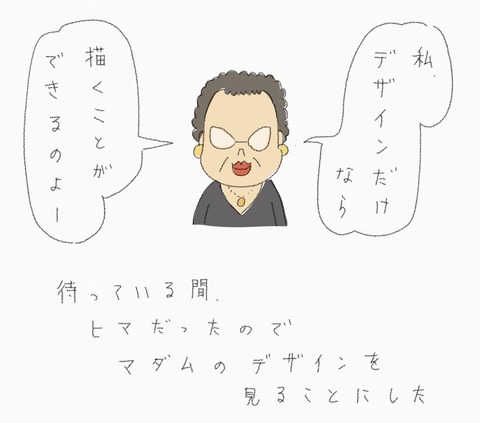 私、
デザインだけ
なら
描くことが
できるのよー
待っている間、
ヒマだったので
マダムのデザインを
見ることにした